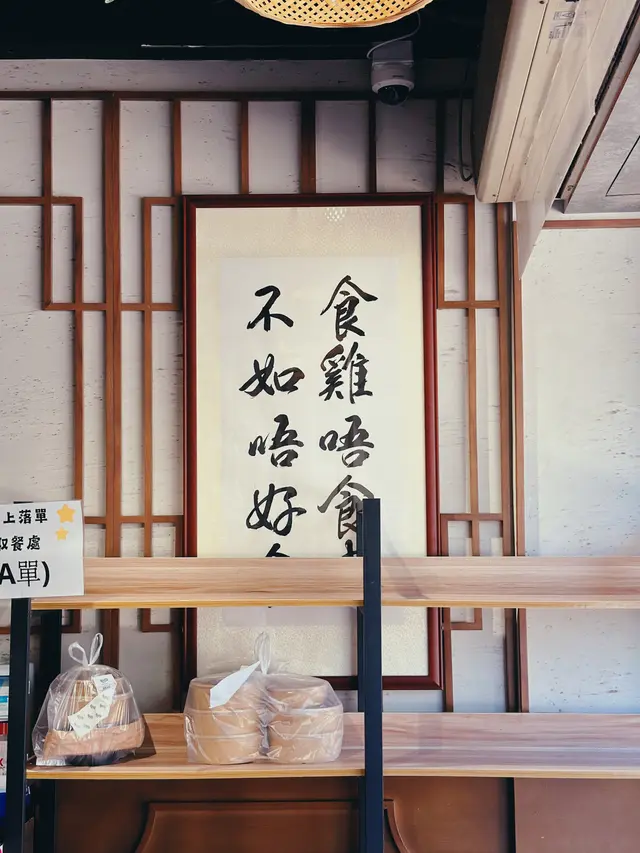 食雞唔食
不如唔好
上落單
取餐處
A單)